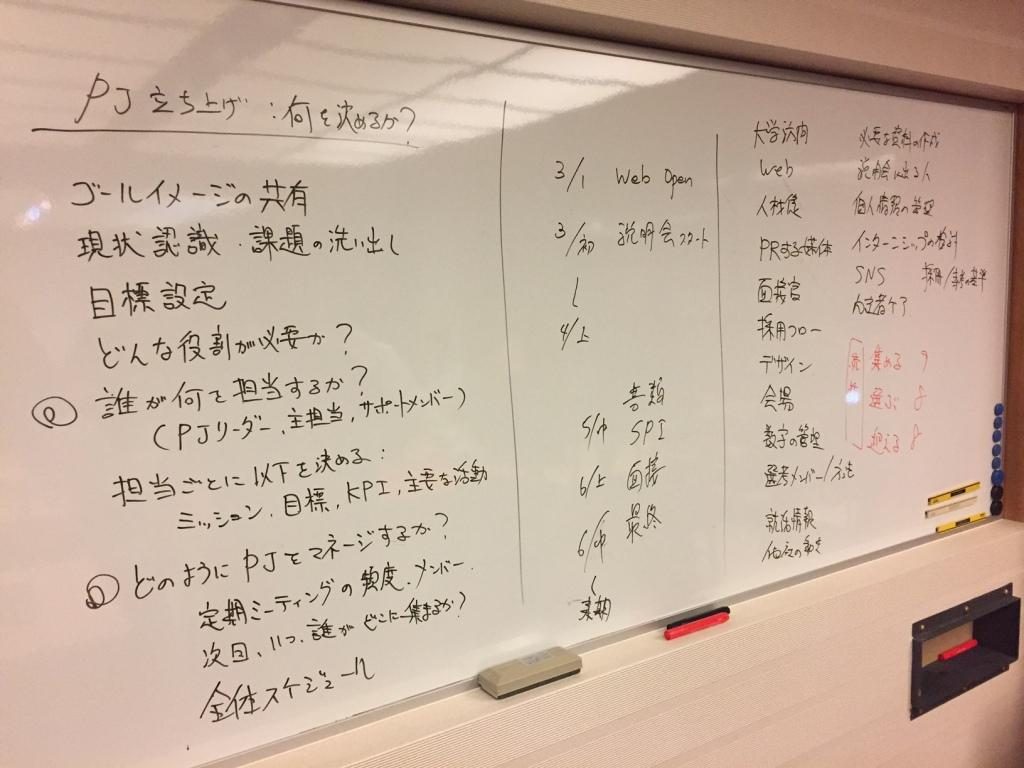 PJ立ち上げ：何を決めるか？
ゴールイメージの共有
現状認識・課題の洗い出し
目標設定
どんな役割が必要か？
誰が何を担当するか？
(PJリーダー、主担当、サポートメンバー)
担当ごとに以下を決める：
ミッション、目標、KPI、主要な活動
どのようにPJをマネージするか？
定期ミーティングの頻度、メンバー
次回、いつ、誰がどこに集まるか？
全体スケジュール
3/1 Web Open
3/初 説明会スタート
4/上
書類
5/中 SPI
6/上 面接
6/中 最終
大学訪問
Web
人材僕
PRする媒体
面接官
採用フロー
デザイン
会場
数字の管理
選考メンバー/
就活情報
他社の動き
必要な資料の作成
説明会に出る人
個人情報の管理
インターンシップの検討
SNS 採用/選考の基準
内定者ケア
集める 9
選ぶ 8
迎える 8